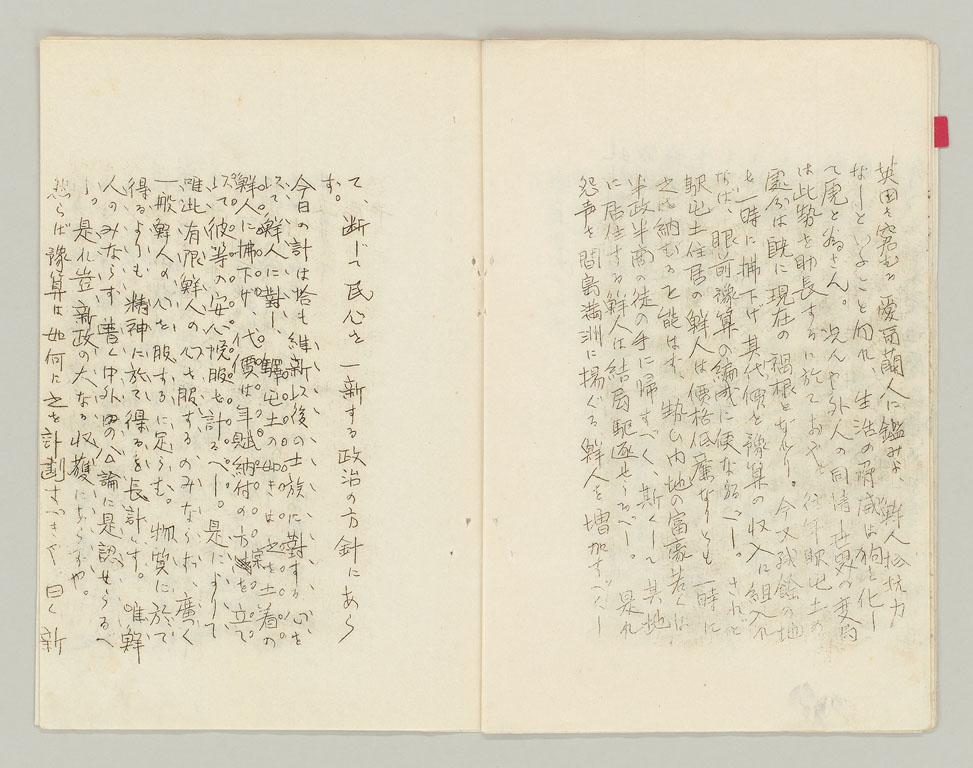 英国を窘むる愛爾蘭人に鑑みよ、鮮人抵抗力
なしといふこと勿れ、生活の脅威は狗を化し
て虎と為さん。次んや外人の同情世界の変局
は此勢を助長するに於ておや。往年駅屯土の
處分は既に現在の禍根となれり。今又残餘の地
を一時に拂下げ、其代価を豫算の収入に組入れ
なば、眼前豫算の編成に便なるべし。されど
駅屯土住居の鮮人は價格低廉なりとも一時に
之を納むると能はず、勢ひ内地の富豪若くは
半政半商の徒の手に帰すべく、斯くして其地
に居住する鮮人は結局駆逐せらるべし。是れ
怨声を間島満洲に揚ぐる鮮人を増加すべし
て、断じて民心を一新する政治の方針にあら
す。
今日の計は恰も維新以後の士族に對する心を
以て、鮮人に對し、驛屯土の如きは之を土着の
鮮人に拂下げ、代價は年賦納付の方法を立て
以て彼等の安心悦服を計るべし。是によりて
唯此有限鮮人の心を服するのみならむ、廣く
一般鮮人の心を服するに足らむ。物質に於て
得るよりも、精神に於て得るを長計とす。唯鮮
人のみならす、普く中外の公論に是認せらるべ
し。是れ豈新政の大なる収獲にあらずや。
然らば豫算は如何に之を計劃すべきや曰く新